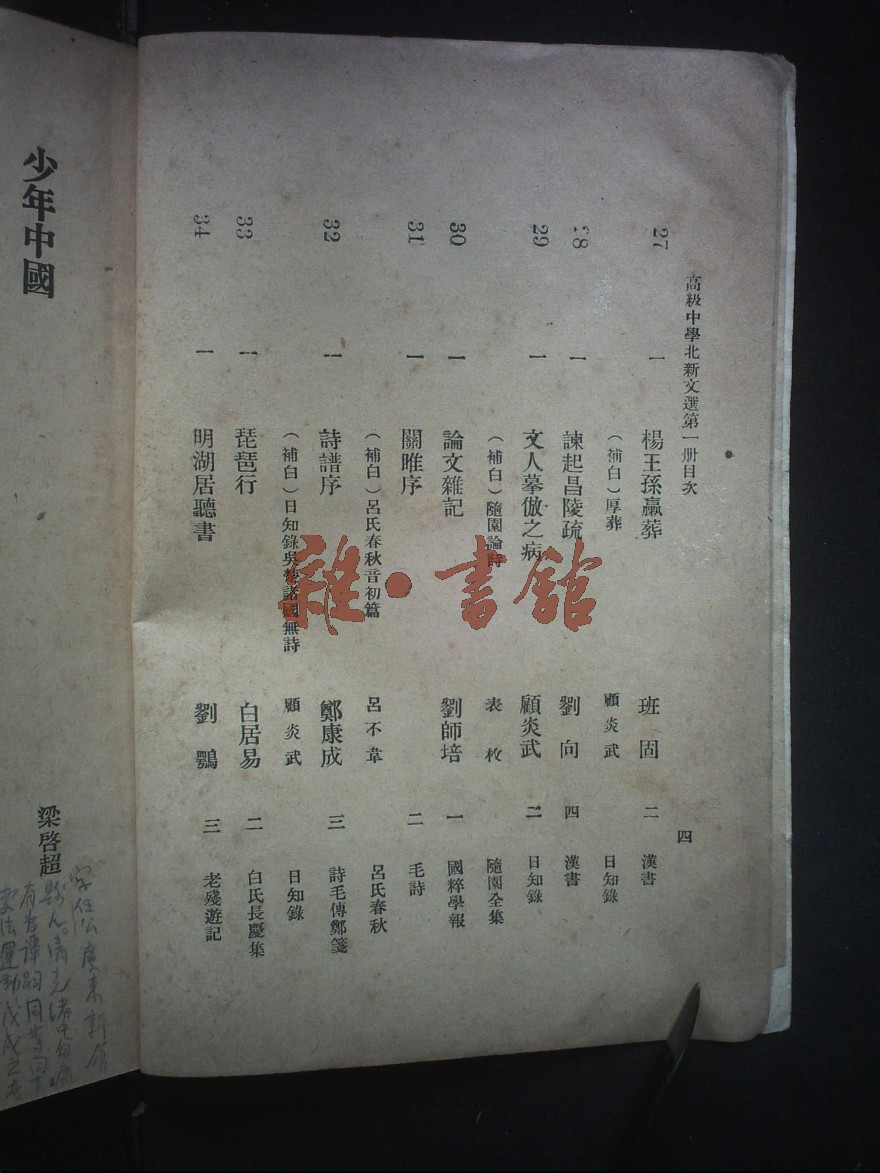 高級中學北新文選第一册目次 四
27 一 楊王孫臝葬 班固 二 漢書
（補白）厚葬 顧炎武 日知錄
28 一 諫起昌陵疏 劉向 四 漢書
29 一 文人摹倣之病 顧炎武 二 日知錄
（補白）隨園論詩 袁枚 隨園全集
30 一 論文雜記 劉師培 一 國粹學報
31 一 關雎序 二 毛詩
（補白）呂氏春秋音初篇 呂不韋 呂氏春秋
32 一 詩譜序 鄭康成 三 詩毛傳鄭箋
（補白）日知錄吳楚諸國無詩 顧炎武 日知錄
33 一 琵琶行 白居易 二 白氏長慶集
34 一 明湖居聽書 劉鶚 三 老殘遊記
雜·書館
少年中國 梁啓超
字任公廣東新
人清光緒中
有為譚嗣同等
變法運動戊戌